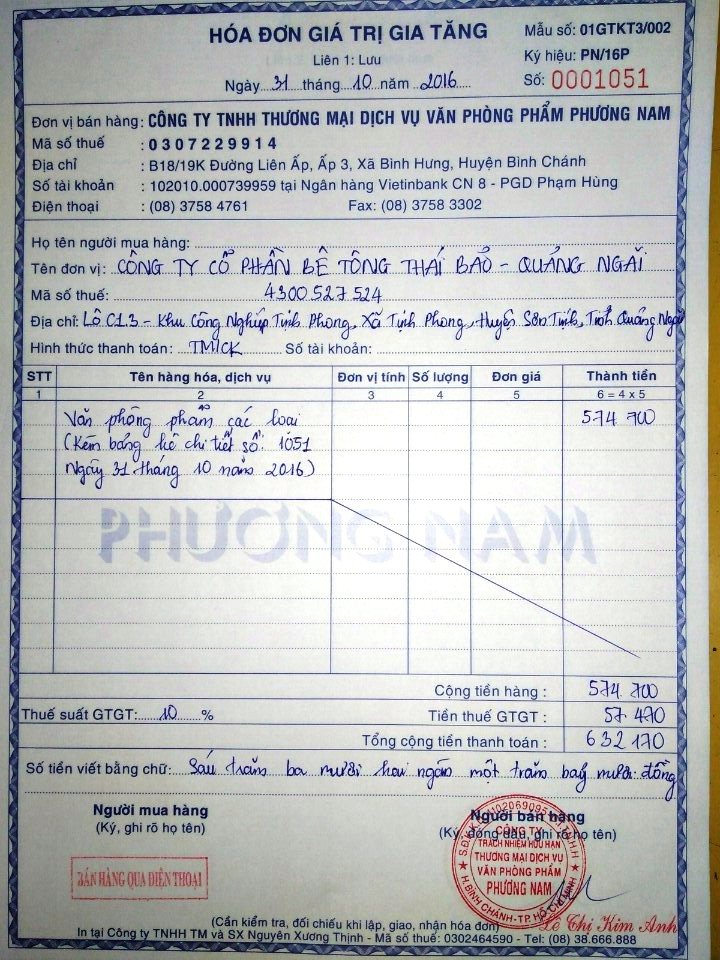 HÓA ĐƠN GIÁ TRỊ GIA TĂNG
Mẫu số: 01GTKT3/002
Liên 1: Lưu
Ký hiệu: PN/16P
Ngày....31....tháng....10....năm....2016....
Số: 0001051
Đơn vị bán hàng: CÔNG TY TNHH THƯƠNG MẠI DỊCH VỤ VĂN PHÒNG PHẨM PHƯƠNG NAM
Mã số thuế : 0307229914
Địa chỉ : B18/19K Đường Liên Ấp, Ấp 3, Xã Bình Hưng, Huyện Bình Chánh
Số tài khoản : 102010.000739959 tại Ngân hàng Vietinbank CN 8 - PGD Phạm Hùng
Điện thoại : (08) 3758 4761 Fax: (08) 3758 3302
Họ tên người mua hàng:
Tên đơn vị: CÔNG TY CỔ PHẦN BÊ TÔNG THÁI BẢO - QUẢNG NGÃI
Mã số thuế: 4300527524
Địa chỉ: Lô C1.3 - Khu Công Nghiệp Tịnh Phong, Xã Tịnh Phong, Huyện Sơn Tịnh, Tỉnh Quảng Ngãi
Hình thức thanh toán: TM/CK Số tài khoản:
STT Tên hàng hóa, dịch vụ Đơn vị tính Số lượng Đơn giá Thành tiền
1 2 3 4 5 6 = 4 x 5
Văn phòng phẩm các loại 574 700
(Kèm bảng kê chi tiết số: 1051
Ngày 31 tháng 10 năm 2016)
PHƯƠNG NAM
Cộng tiền hàng : 574 700
Thuế suất GTGT:....10....% Tiền thuế GTGT : 57 470
Tổng cộng tiền thanh toán : 632 170
Số tiền viết bằng chữ: Sáu trăm ba mươi hai ngàn một trăm bảy mươi đồng
Người mua hàng Người bán hàng
(Ký, ghi rõ họ tên) (Ký, đóng dấu, ghi rõ họ tên)
BÁN HÀNG QUA ĐIỆN THOẠI
CÔNG TY
TRÁCH NHIỆM HỮU HẠN
THƯƠNG MẠI DỊCH VỤ
VĂN PHÒNG PHẨM
PHƯƠNG NAM
H.BÌNH CHÁNH-TP.HỒ CHÍ MINH
Lê Thị Kim Anh
(Cần kiểm tra, đối chiếu khi lập, giao, nhận hóa đơn)
In tại Công ty TNHH TM và SX Nguyên Xương Thịnh - Mã số thuế: 0302464590 - Tel: (08) 38.666.888